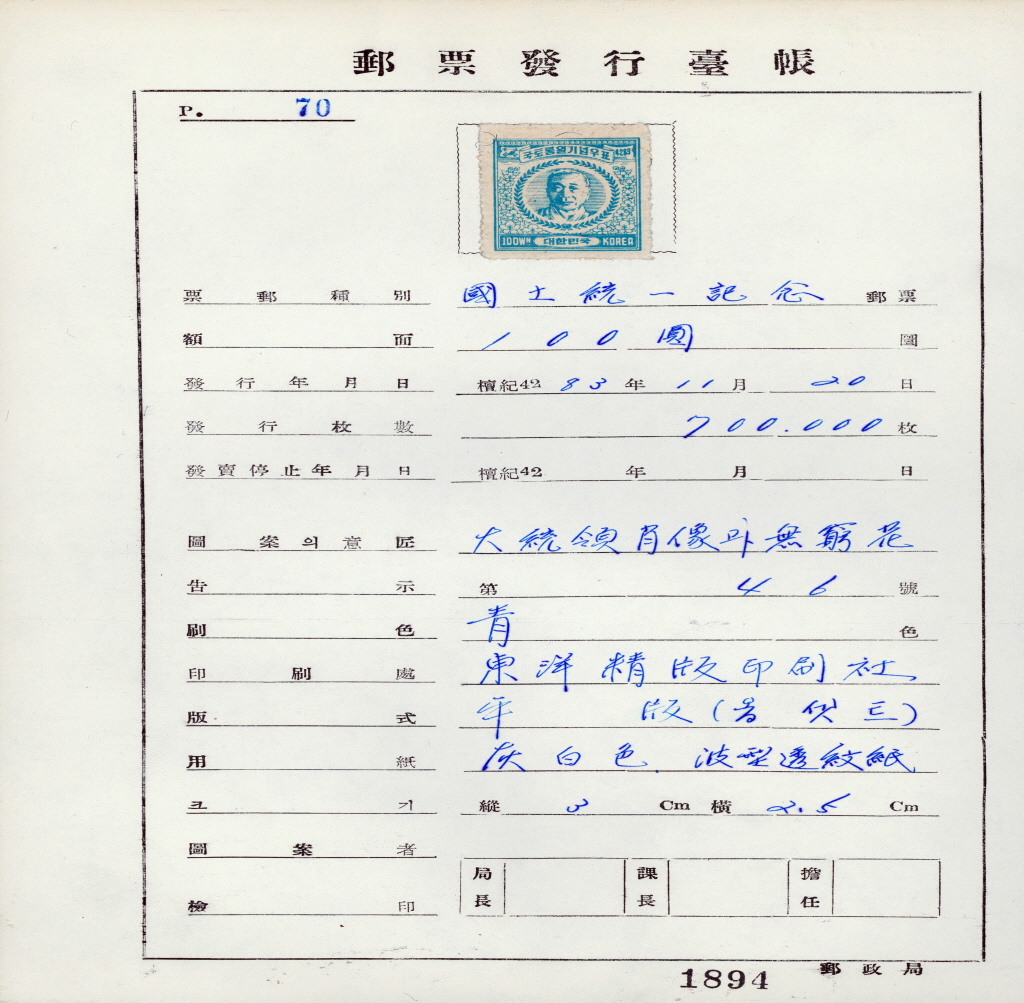 郵票發行臺帳
P. 70
국토통일기념우표 4283
100WN 대한민국 KOREA
票郵種別 國土統一記念 郵票
額面 100圓 圜
發行年月日 檀紀42 83年 11月 20日
發行枚數 700.000枚
發賣停止年月日 檀紀42 年 月 日
圖案의意匠 大統領肖像과無窮花
告示 第 46 號
刷色 青 色
印刷處 東洋精版印刷社
版式 平 版
用紙 灰白色. 波型透紋紙
크기 縱 3 Cm 橫 2.5 Cm
圖案者
檢印 局長 課長 擔任
1894 郵政局